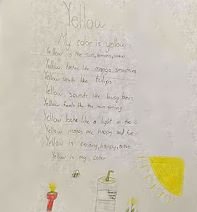 Yellow
My color is yellow
Yellow is the sun, banana,
Yellow tastes like mango smoothie
Yellow smells like tulips
Yellow sounds like busy bees
Yellow feels like the sun shining
Yellow looks like a light in the
Yellow makes me happy and
Yellow is exciting, happy,
Yellow is my color